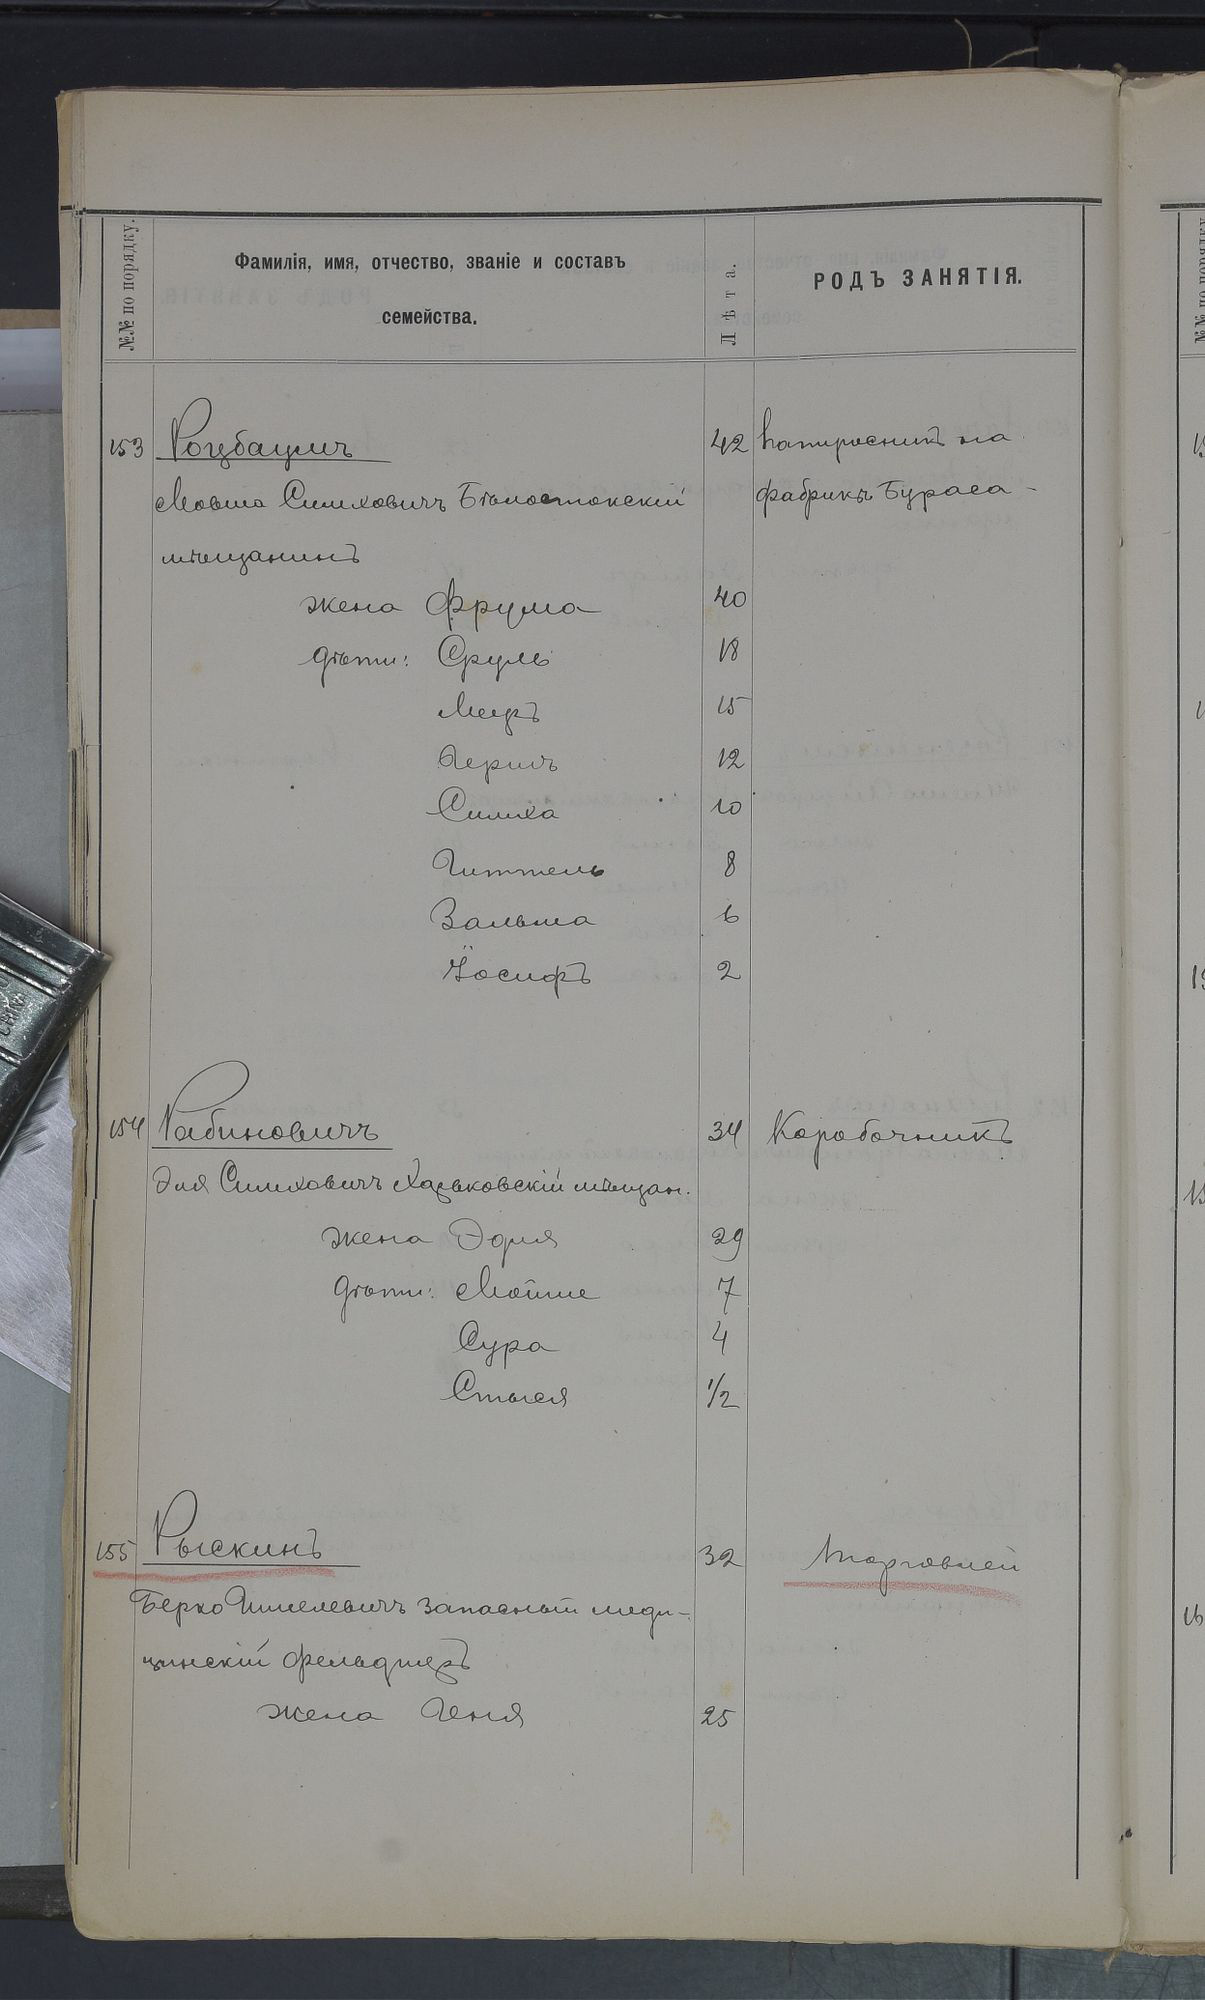 №№ по порядку.
Фамилія, имя, отчество, званіе и составъ
семейства.
Лѣта.
РОДЪ ЗАНЯТІЯ.
153 Розбаумъ 42 Папиросникъ на
Мовша Симховичъ Бѣлостокскій фабрикѣ Бураса -
мѣщанинъ
жена Фрума 40
дѣти: Сруль 18
Мееръ 15
Гершъ 12
Симха 10
Гиттель 8
Вальма 6
Іосифъ 2
154 Рабиновичъ 34 Коробочникъ
Эля Симховичъ Харьковскій мѣщан.
жена Эфия 29
дѣти: Мойше 7
Сура 4
Стыся 1/2
155 Рыскинъ 32 Торговлей
Берко Ишелевичъ Запасный меди-
цинскій фельдшеръ
жена Геня 25
№№ по порядку